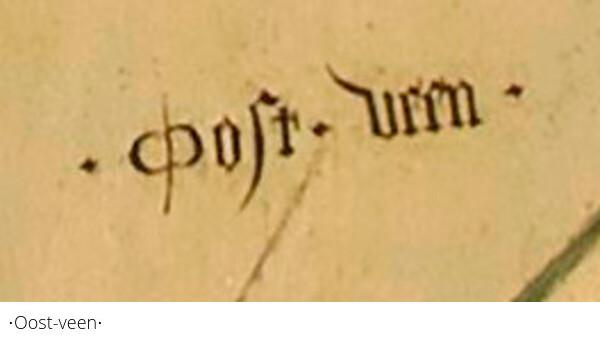 · Oost · veen ·
·Oost-veen·